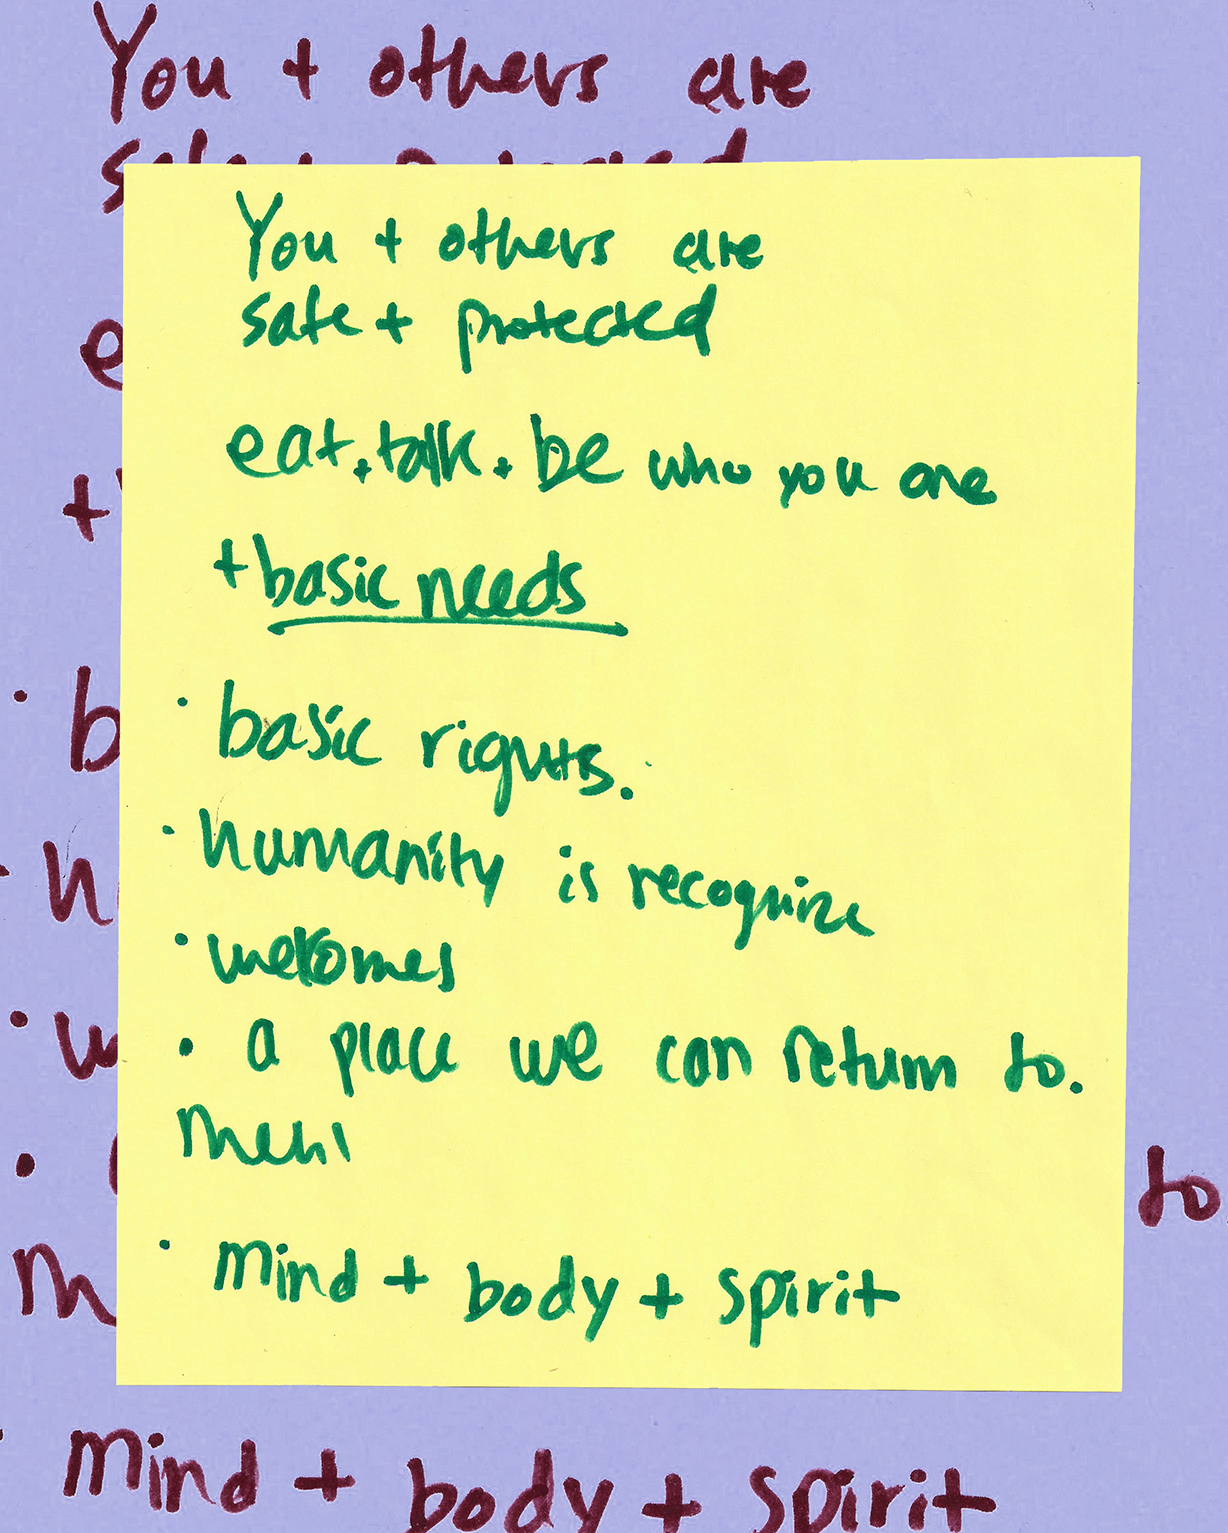 You + others are
You + others are
safe + protected
eat. + talk. + be who you are
+ basic needs
· basic rights.
· humanity is recognize
· welcomes
· a place we can return to.
to
· mind + body + spirit
mind + body + spirit